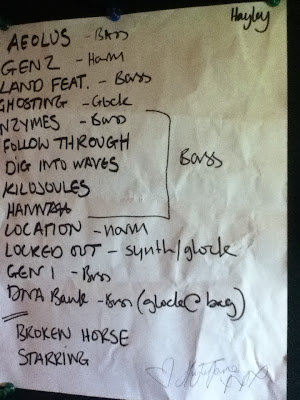 Hayley
AEOLUS - BASS
GEN 2 - Harm
LAND FEAT. - Bass
GHOSTING - Glock
NZYMES - Bass
FOLLOW THROUGH
DIG INTO WAVES
Bass
KILOJOULES
HANNAH
LOCATION - harm
LOCKED OUT - synth/glock
GEN 1 - Bass
DNA Bank - Bass (glock@beg)
BROKEN HORSE
STARRING